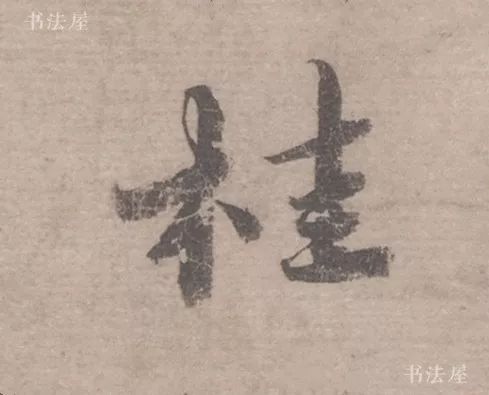 书法屋
桂
书法屋